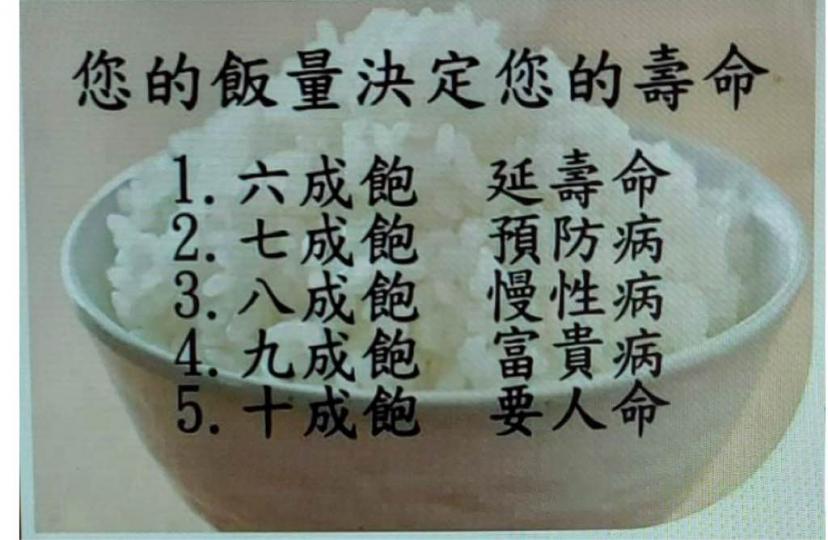 您的飯量決定您的壽命
1.六成飽 延壽命
2.七成飽 預防病
3.八成飽 慢性病
4.九成飽 富貴病
5.十成飽 要人命